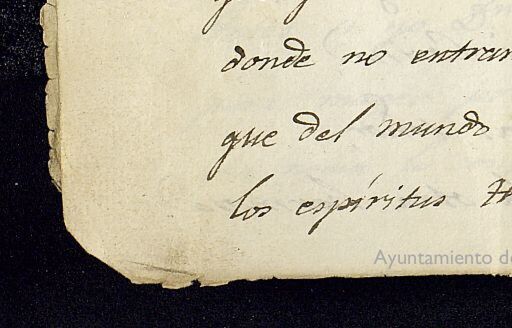 donde no entran
que del mundo
los espíritus
Ayuntamiento de